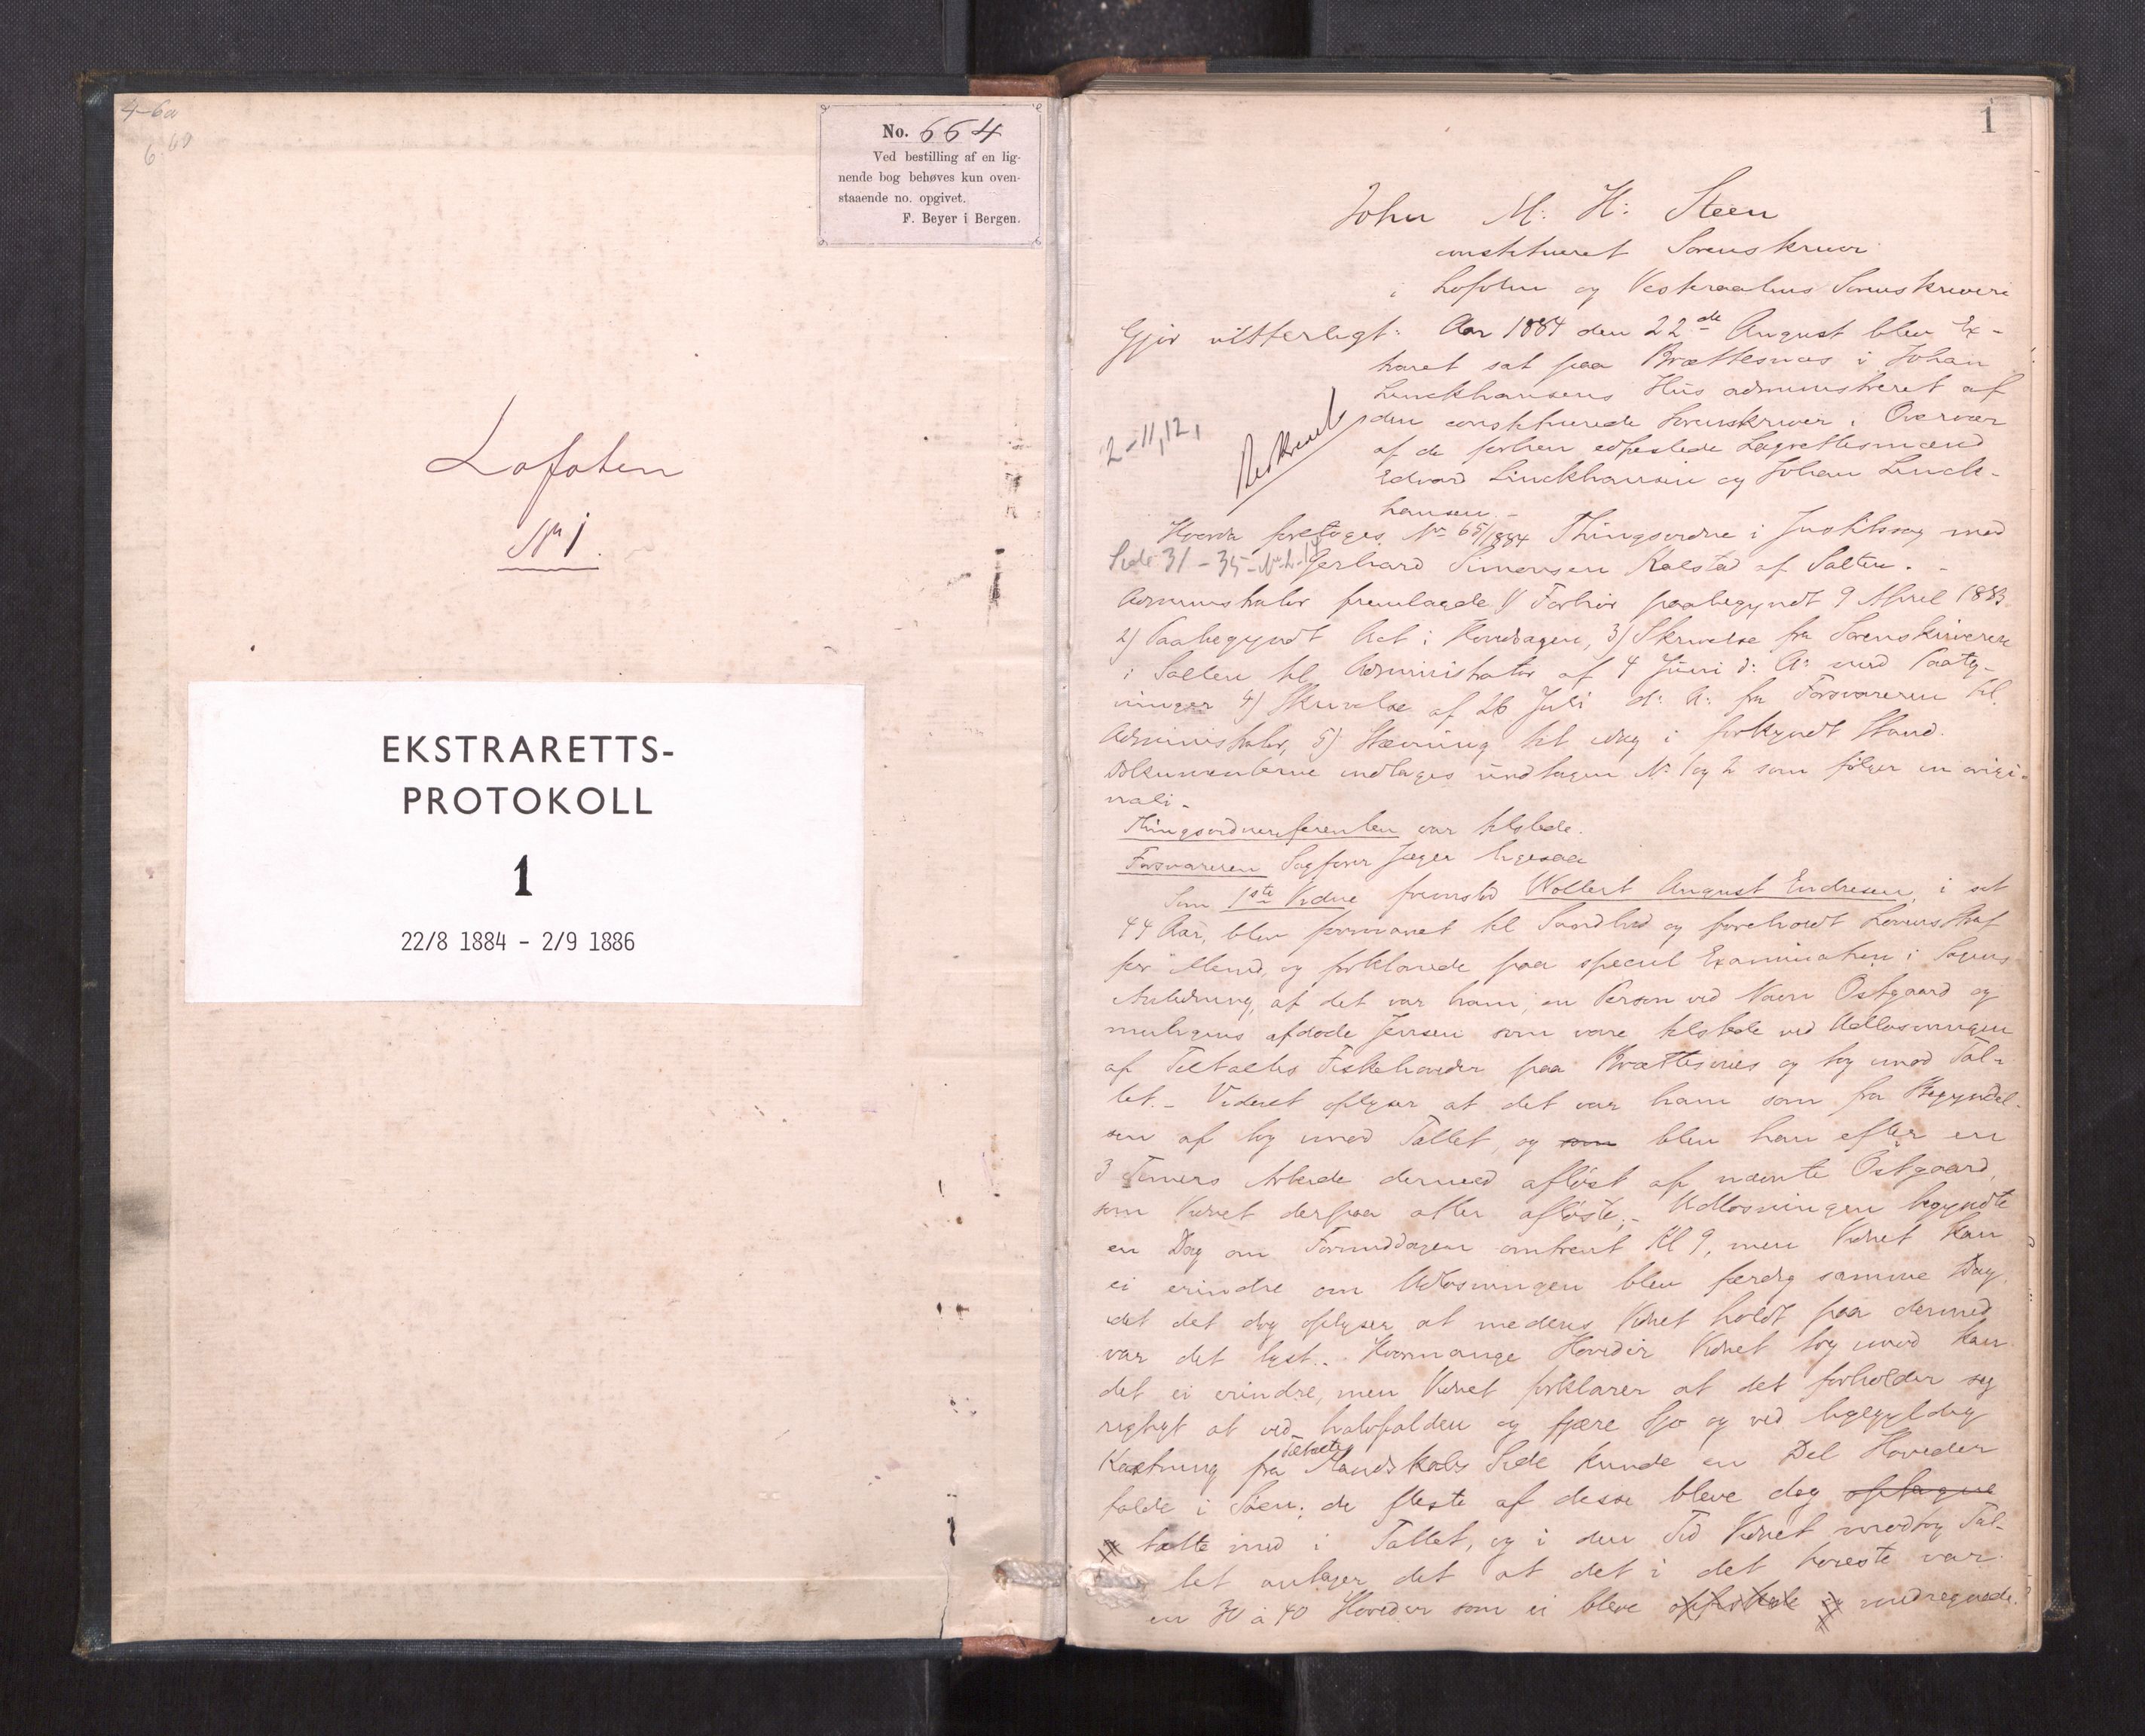 4-6a
6.60
No. 664
Ved bestilling af en lig-
nende bog behøves kun oven-
staaende no. opgivet.
F. Beyer i Bergen.
Lofoten
No 1.
EKSTRARETTS-
PROTOKOLL
1
22/8 1884 - 2/9 1886
1
John M: H: Steen
constitueret Sorenskriver
i Lofoten og Vesteraalens Sorenskriveri
Gjør vitterligt: Aar 1884 den 22de August blev Ex-
traret sat paa Brættesnæs i Johan
Linckhausens Hus administreret af
den constituerede Sorenskriver i Overvær
af de forhen edfæstede Lagrettesmænd
Edvard Linckhausen og Johan Linck-
hausen.-
2-11,12,
Beskrevet
Hvorda foretoges No 65/1884 Thingsvidne i Justitssag mod
Side 31 - 35 -
Gerhard Simonsen Kalstad af Salten. -
Administrator fremlagde 1) Forhør paabegyndt 9 April 1883
2) Paabegyndt Act i Hovedsagen, 3) Skrivelse fra Sorenskriveren
i Salten til Administrator af 4 Juni d: A: med Paateg-
ninger 4) Skrivelse af 26 Juli d: A: fra Forsvareren til
Administrator, 5) Stævning til idag i forkyndt Stand.
Dokumenterne indtages undtagen No 1 og 2 som følger in origi-
nali.-
Thingsvidnereferenten var tilstede.
Forsvareren Sagfører Jæger ligesaa
Som 1ste Vidne fremstod Wollert August Endresen, i sit
44 Aar, blev formanet til Sandhed og foreholdt Lovens Straf
for Mened, og forklarede paa speciel Examination i Sagens
Anledning, at det var ham, en Person ved Navn Ostgaard og
muligens afdøde Jensen som vare tilstede ved Udlosningen
af Tiltaltes Fiskehoveder paa Brættesnæs og tog imod Tal-
let.- Vidnet oplyser at det var ham som fra Begyndel-
sen af tog imod Tallet, og som blev han efter en
3 Timers Arbeide dermed afløst af nævnte Ostgaard,
som Vidnet derpaa atter afløste.- Udlosningen begyndte
en Dag om Formiddagen omtrent Kl 9, men Vidnet kan
ei erindre om Udlosningen blev færdig samme Dag,
idet det dog oplyser at medens Vidnet holdt paa dermed
var det lyst.- Hvormange Hoveder Vidnet tog imod kan
det ei erindre, men Vidnet forklarer at det forholder sig
rigtigt at ved halvfalden og fjære Sjø og ved ligegyldig
Kastning fra Tiltaltes Mandskabs Side kunde en Del Hoveder
falde i Søen; de fleste af desse bleve dog optagne
talte med i Tallet, og i den Tid Vidnet modtog Tal-
let antager det at det i det høieste var
en 30 à 40 Hoveder som ei bleve medregnede.